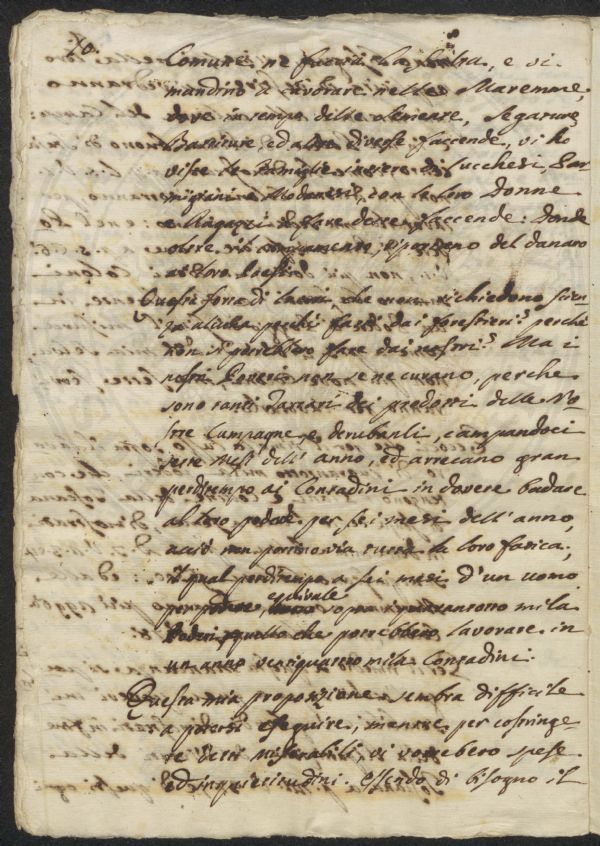 70.
Comune ne fuori la Patria, e vi
mandino a lavorare nelle Maremme,
dove in tempo delle semente, Segature,
Battiture, ed altre diverse faccende, vi ho
viste le Famiglie intiere di Lucchesi, Par-
migiani e Modanesi, con le loro Donne
e Ragazzi a fare dette faccende: Donde
oltre il riportano del danaro
al loro Paese.
Questi sorte di lavori, che non richiedono scien-
za alcuna perchè farsi dai forestieri? perchè
non si potrebbero fare dai nostri? Ma i
nostri Poveri non se ne curano, perchè
sono tanti Tartari dei prodotti delle No-
stre Campagne e derubanli, campandoci
sette mesi dell' anno, ed arrecano gran
perditempo ai Contadini in dovere badare
al loro podere per sei mesi dell' anno,
acciò non portino via tutta la loro fatica;
il qual perditempo a sei mesi d' un uomo
per podere, equivale sopra quarantotto mila
Poderi, quello che potrebbero lavorare in
un anno ventiquattro mila Contadini.
Questa mia proposizione sembra difficile
a potersi eseguire, mentre per costringe-
re detti miserabili, vi vorrebbero spese
ed inquietitudini. essendo di bisogno il